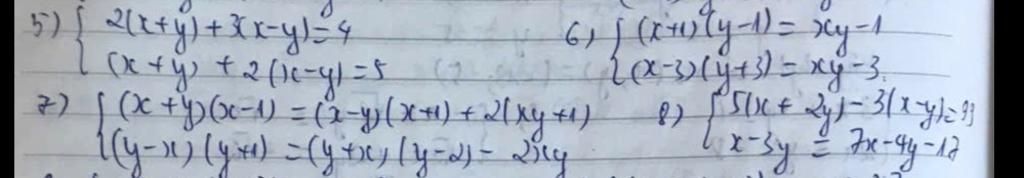 5) { 2(x+y)+3(x-y)=4
(x+y)+2(x-y)=5
6) { (x+1)(y-1)=xy-1
(x-3)(y+3)=xy-3.
7) { (x+y)(x-1)=(x-y)(x+1)+2(xy+1)
(y-x)(y+1)=(y+x)(y-2)-2xy
8) { 5(x+2y)-3(x-y)=99
x-3y=7x-4y-17